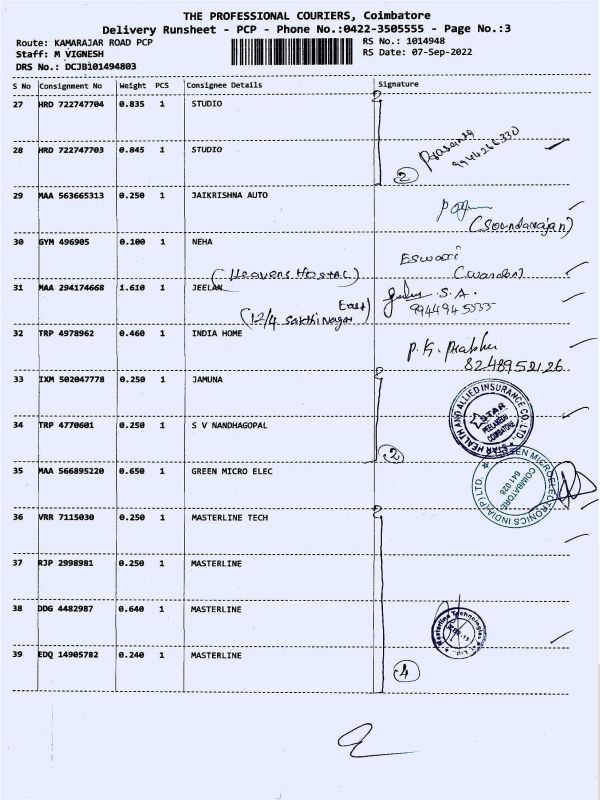 THE PROFESSIONAL COURIERS, Coimbatore
Delivery Runsheet - PCP - Phone No.:0422-3505555 - Page No.:3
Route: KAMARAJAR ROAD PCP
RS No.: 1014948
Staff: M VIGNESH
RS Date: 07-Sep-2022
DRS No.: DCJB101494803
S No Consignment No Weight PCS Consignee Details Signature
27 HRD 722747704 0.835 1 STUDIO
28 HRD 722747703 0.845 1 STUDIO
9944266330
2
29 MAA 563665313 0.250 1 JAIKRISHNA AUTO
(Soundarajan)
30 GYM 496905 0.100 1 NEHA
(Heavens Hostal)
Eswari
(warden)
31 MAA 294174668 1.610 1 JEELAN
(12/4 Sakthi Nagar East)
S.A.
9944945555
32 TRP 4978962 0.460 1 INDIA HOME
P.K. Prabhu
8248952126
33 IXM 502047778 0.250 1 JAMUNA
STAR HEALTH AND ALLIED INSURANCE CO. LTD.
STAR
PEELAMEDU
COIMBATORE
34 TRP 4770601 0.250 1 S V NANDHAGOPAL
2
35 MAA 566895220 0.650 1 GREEN MICRO ELEC
GREEN MICROELECTRONICS INDIA(P)LTD.
COIMBATORE
641 028
36 VRR 7115030 0.250 1 MASTERLINE TECH
37 RJP 2998981 0.250 1 MASTERLINE
38 DDG 4482987 0.640 1 MASTERLINE
Masterline Technologies Pvt Ltd.
39 EDQ 14905782 0.240 1 MASTERLINE
4